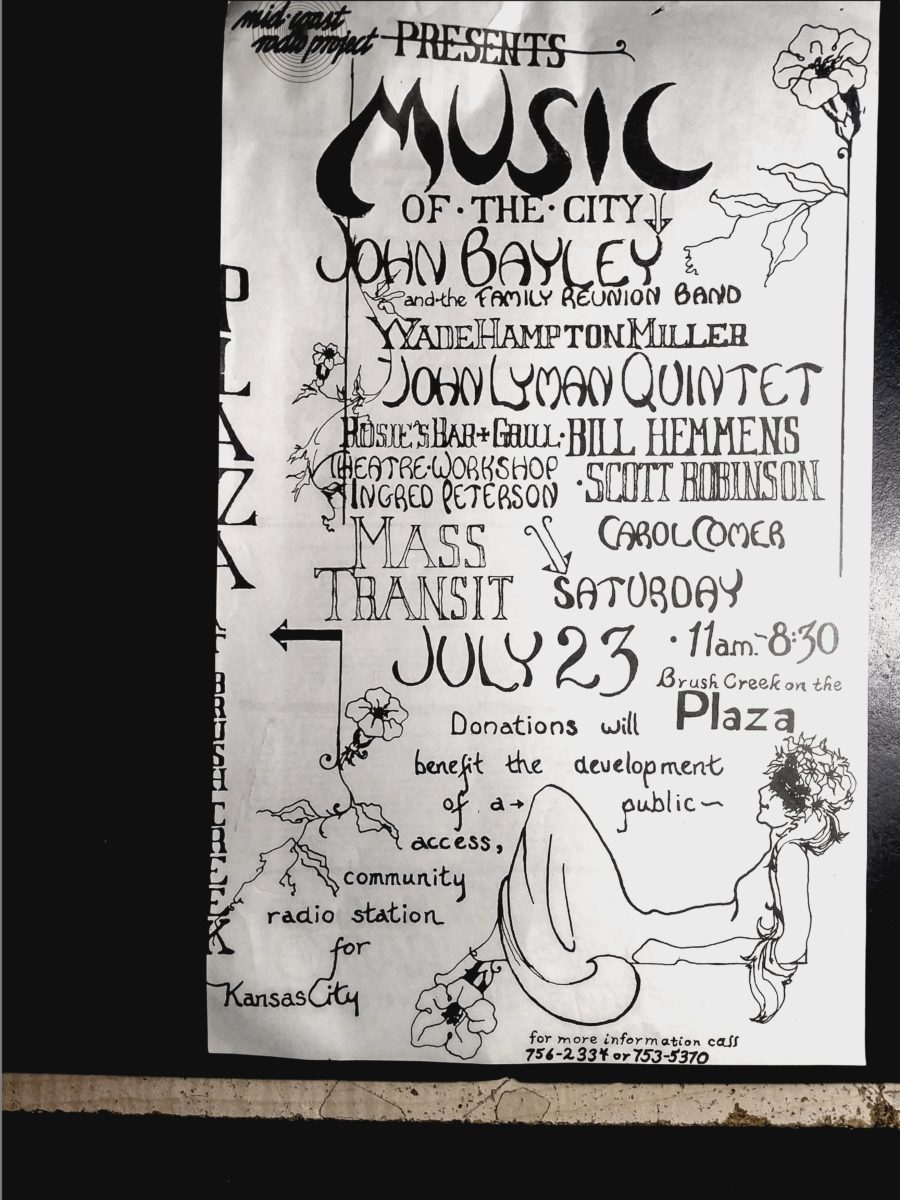 mid-coast
radio project
PRESENTS
MUSIC
OF·THE·CITY
JOHN BAYLEY
and·the FAMILY REUNION BAND
WADE HAMPTON MILLER
JOHN LYMAN QUINTET
ROSIE'S BAR + GRILL·BILL HEMMENS
THEATRE·WORKSHOP
INGRED PETERSON ·SCOTT ROBINSON
CAROL COMER
MASS
TRANSIT
SATURDAY
JULY 23 · 11am.-8:30
Brush Creek on the
Plaza
Donations will
benefit the development
of a public
access,
community
radio station
for
Kansas City
for more information call
756-2334 or 753-5370
PLAZA
AT BRUSH CREEK